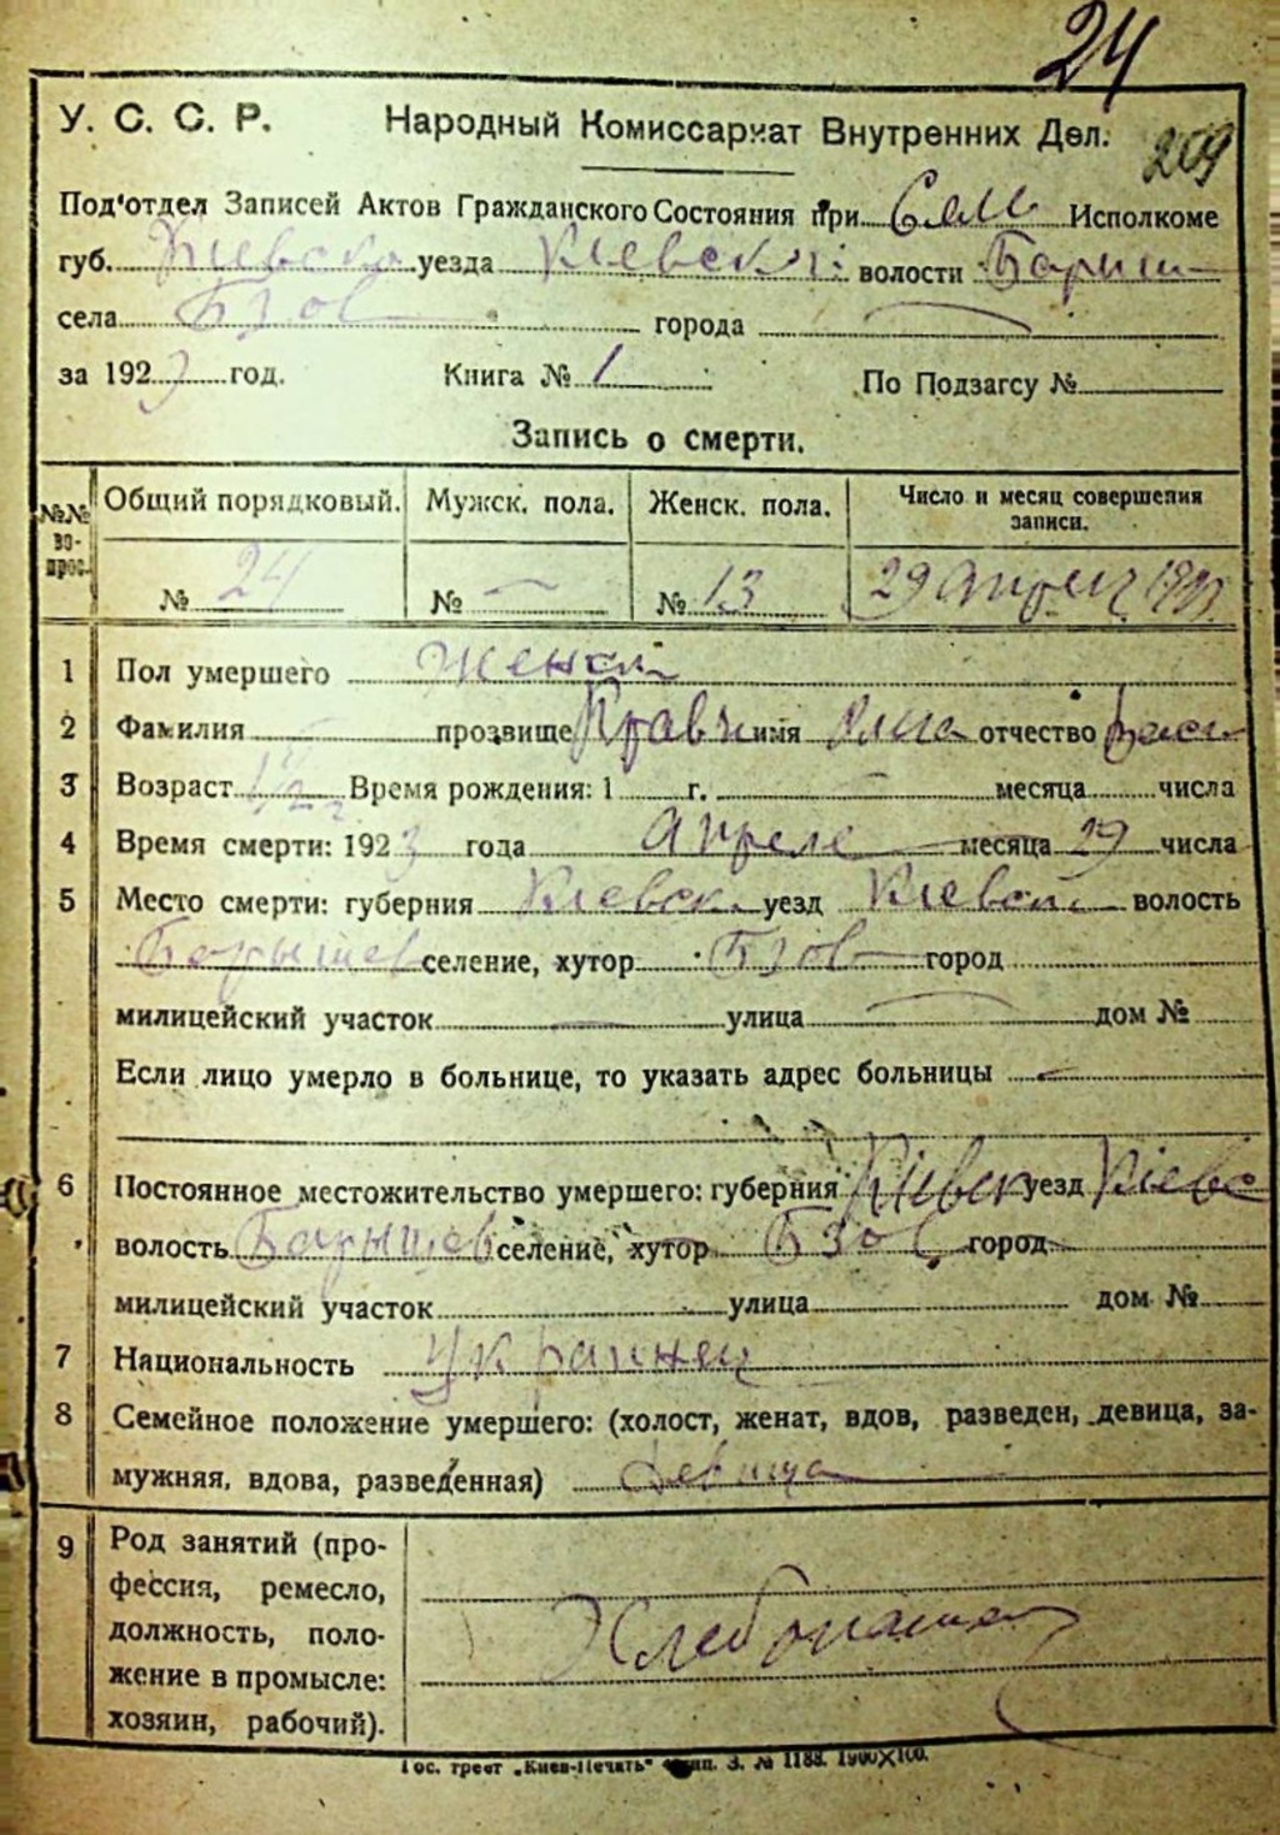 24
У. С. С. Р. Народный Комиссариат Внутренних Дел. 209
Под'отдел Записей Актов Гражданского Состояния при Сель Исполкоме
губ. Киевско уезда Киевской волости Бариш
села Бзов города
за 1923 год. Книга № 1 По Подзагсу №
Запись о смерти.
№№ вопрос. Общий порядковый. Мужск. пола. Женск. пола. Число и месяц совершения записи.
№ 24 № — № 13 29 апреля 1923
1 Пол умершего Женск
2 Фамилия прозвище Кравч имя отчество Васи
3 Возраст 1 1/2 г Время рождения: 1 г. — месяца числа
4 Время смерти: 1923 года Апреле месяца 29 числа
5 Место смерти: губерния Киевск уезд Киевск волость
Барышев селение, хутор Бзов город
милицейский участок — улица — дом №
Если лицо умерло в больнице, то указать адрес больницы —
6 Постоянное местожительство умершего: губерния Кіевск уезд Кіевс
волость Барышев селение, хутор Бзов город
милицейский участок улица дом №
7 Национальность Украинец
8 Семейное положение умершего: (холост, женат, вдов, разведен, девица, за-
мужняя, вдова, разведенная) Девица
9 Род занятий (про-
фессия, ремесло,
должность, поло-
жение в промысле:
хозяин, рабочий).
Хлебопаш
Гос. трест „Киев-Печать“ тип. 3. № 1188. 1900×100.